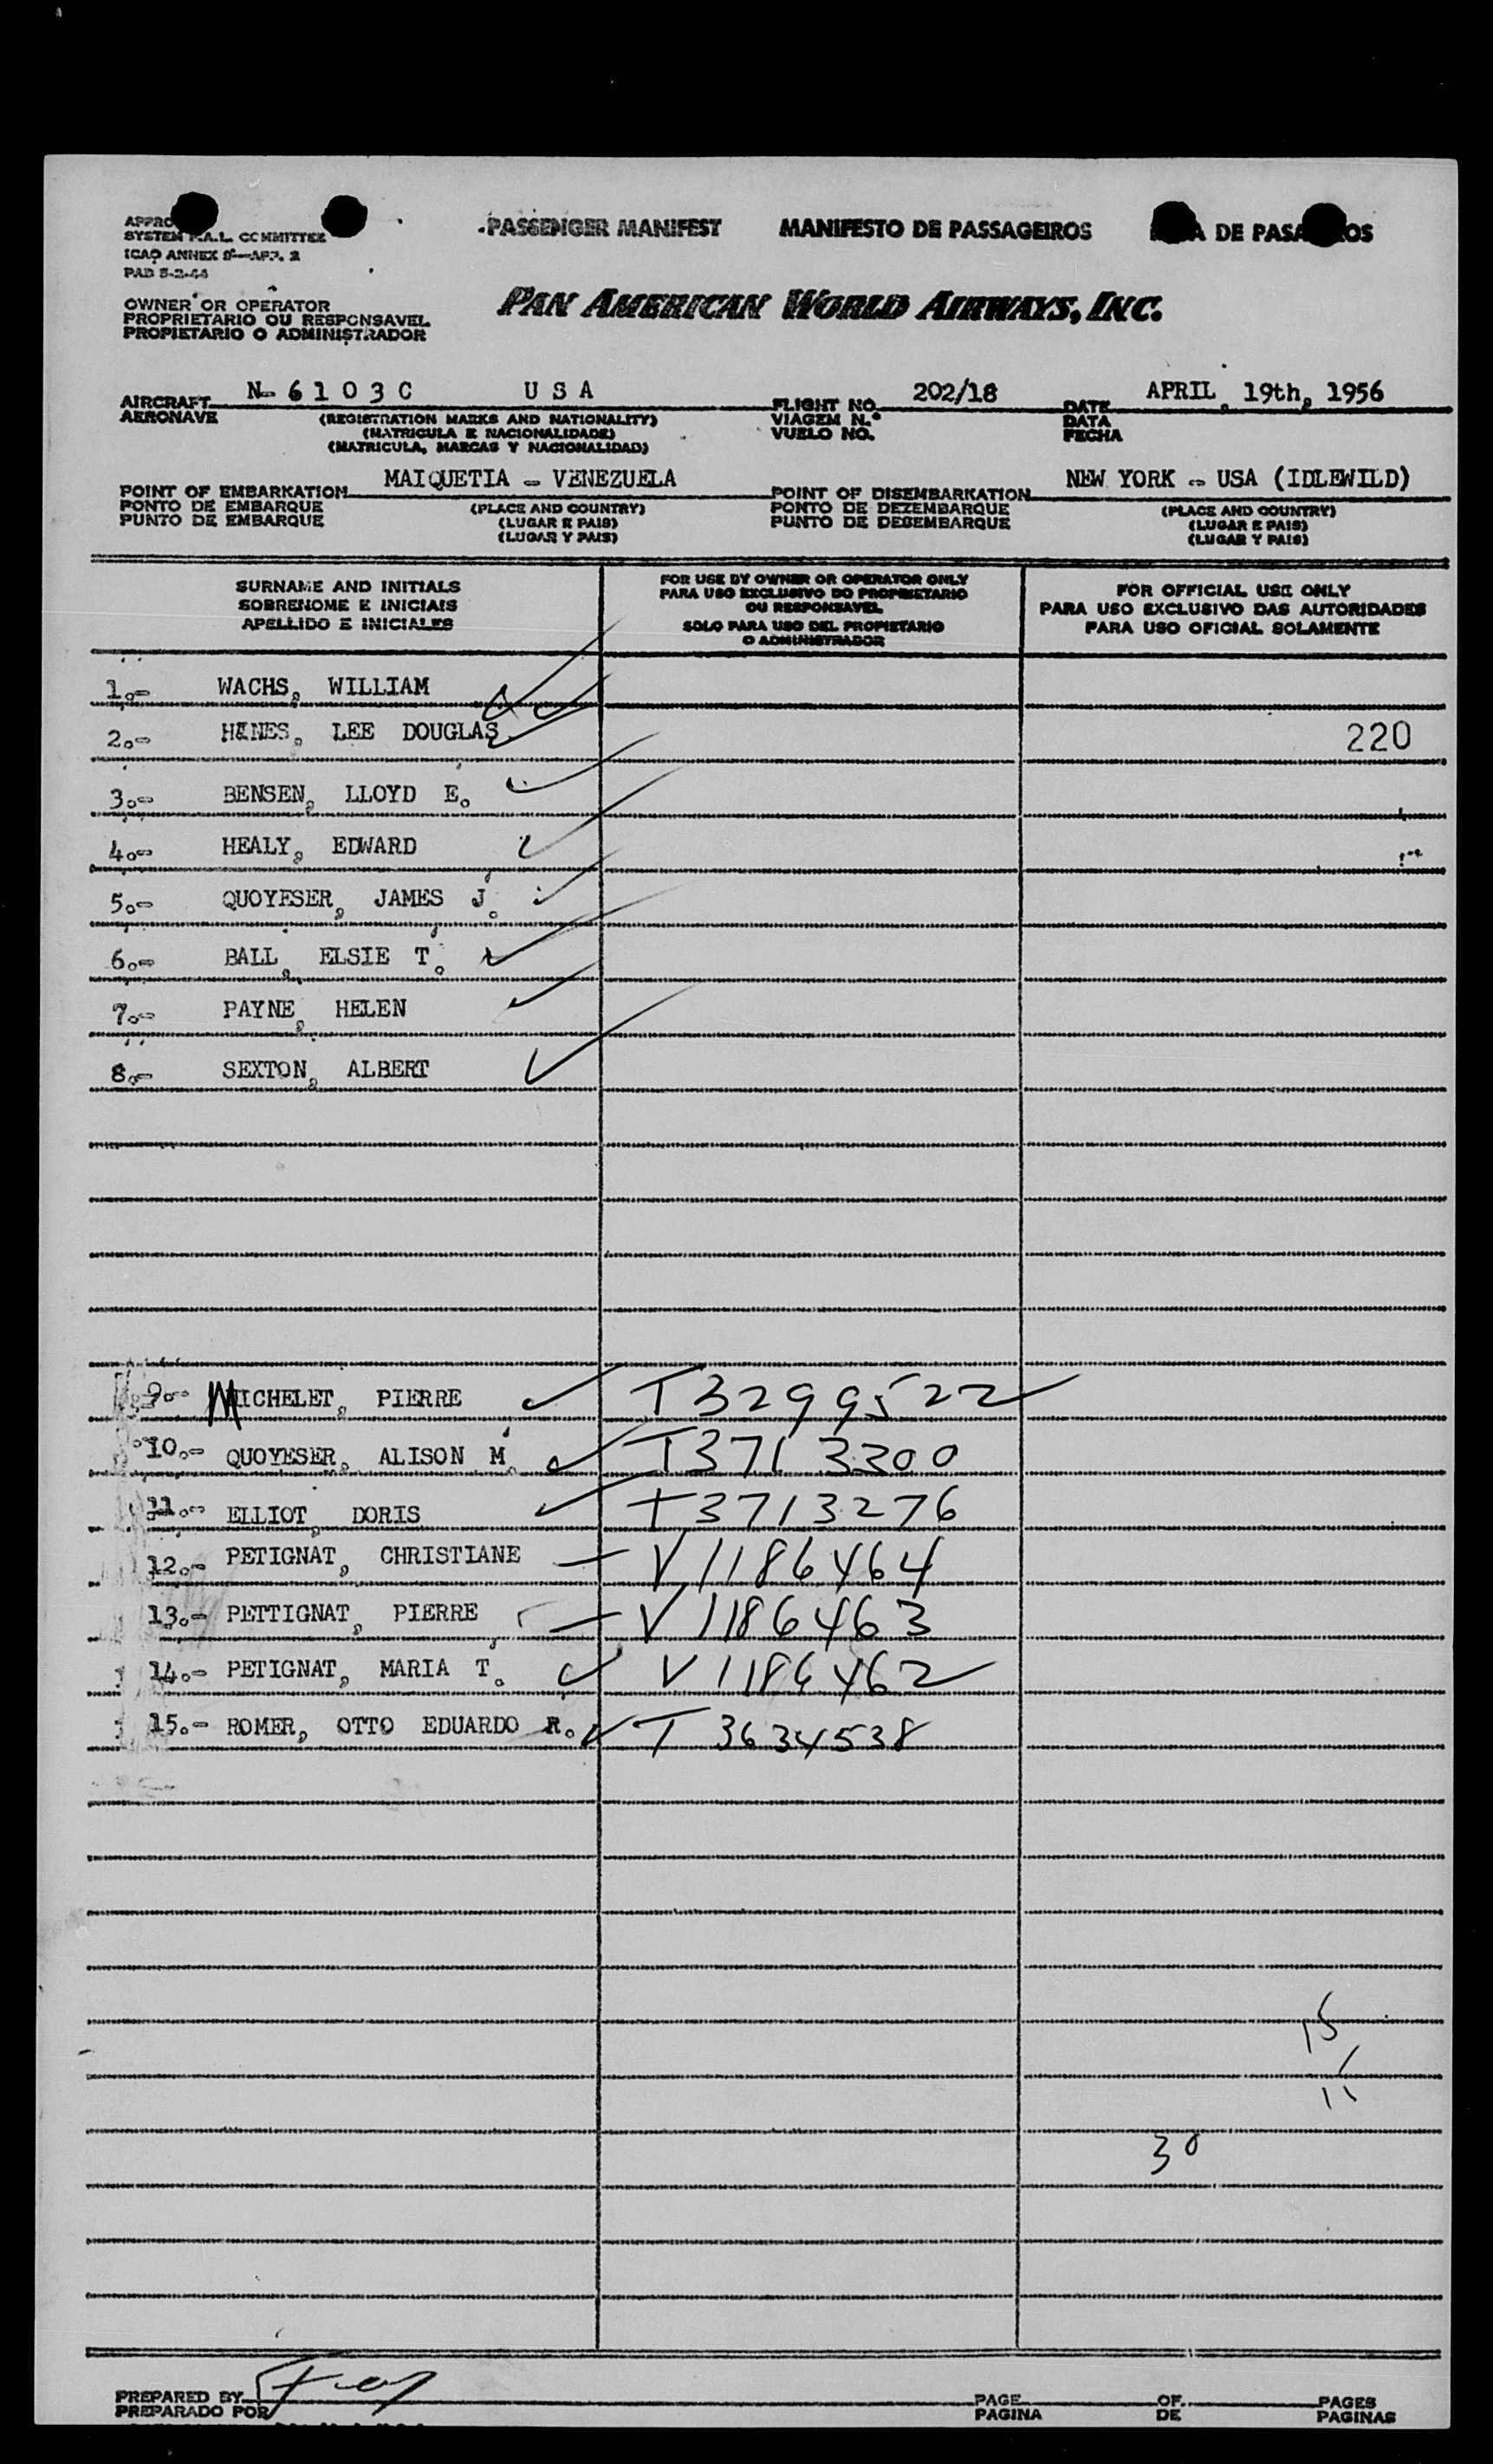 PASSENGER MANIFEST MANIFESTO DE PASSAGEIROS DE PASA
SYSTEM F.A.L. COMMITTEE
ICAO ANNEX 9—APP. 2
PAD 5-2-44
OWNER OR OPERATOR
PROPRIETARIO OU RESPONSAVEL
PROPIETARIO O ADMINISTRADOR
PAN AMERICAN WORLD AIRWAYS, INC.
AIRCRAFT N- 6 1 0 3 C U S A FLIGHT NO. 202/18 DATE APRIL, 19th, 1956
AERONAVE (REGISTRATION MARKS AND NATIONALITY) VIAGEM N.º DATA
(MATRICULA E NACIONALIDADE) VUELO NO. FECHA
(MATRICULA, MARCAS Y NACIONALIDAD)
POINT OF EMBARKATION MAIQUETIA - VENEZUELA POINT OF DISEMBARKATION NEW YORK - USA (IDLEWILD)
PONTO DE EMBARQUE (PLACE AND COUNTRY) PONTO DE DEZEMBARQUE (PLACE AND COUNTRY)
PUNTO DE EMBARQUE (LUGAR E PAIS) PUNTO DE DESEMBARQUE (LUGAR E PAIS)
(LUGAR Y PAIS) (LUGAR Y PAIS)
SURNAME AND INITIALS
SOBRENOME E INICIAIS
APELLIDO E INICIALES
FOR USE BY OWNER OR OPERATOR ONLY
PARA USO EXCLUSIVO DO PROPRIETARIO
OU RESPONSAVEL
SOLO PARA USO DEL PROPIETARIO
O ADMINISTRADOR
FOR OFFICIAL USE ONLY
PARA USO EXCLUSIVO DAS AUTORIDADES
PARA USO OFICIAL SOLAMENTE
1.- WACHS, WILLIAM
2.- HANES, LEE DOUGLAS 220
3.- BENSEN, LLOYD E.
4.- HEALY, EDWARD
5.- QUOYESER, JAMES J.
6.- BALL, ELSIE T.
7.- PAYNE, HELEN
8.- SEXTON, ALBERT
9.- MICHELET, PIERRE T3299522
10.- QUOYESER, ALISON M. T3713300
11.- ELLIOT, DORIS T3713276
12.- PETIGNAT, CHRISTIANE V1186464
13.- PETTIGNAT, PIERRE V1186463
14.- PETIGNAT, MARIA T. V1186462
15.- ROMER, OTTO EDUARDO R. T 3634538
15
30
PREPARED BY PAGE OF PAGES
PREPARADO POR PAGINA DE PAGINAS